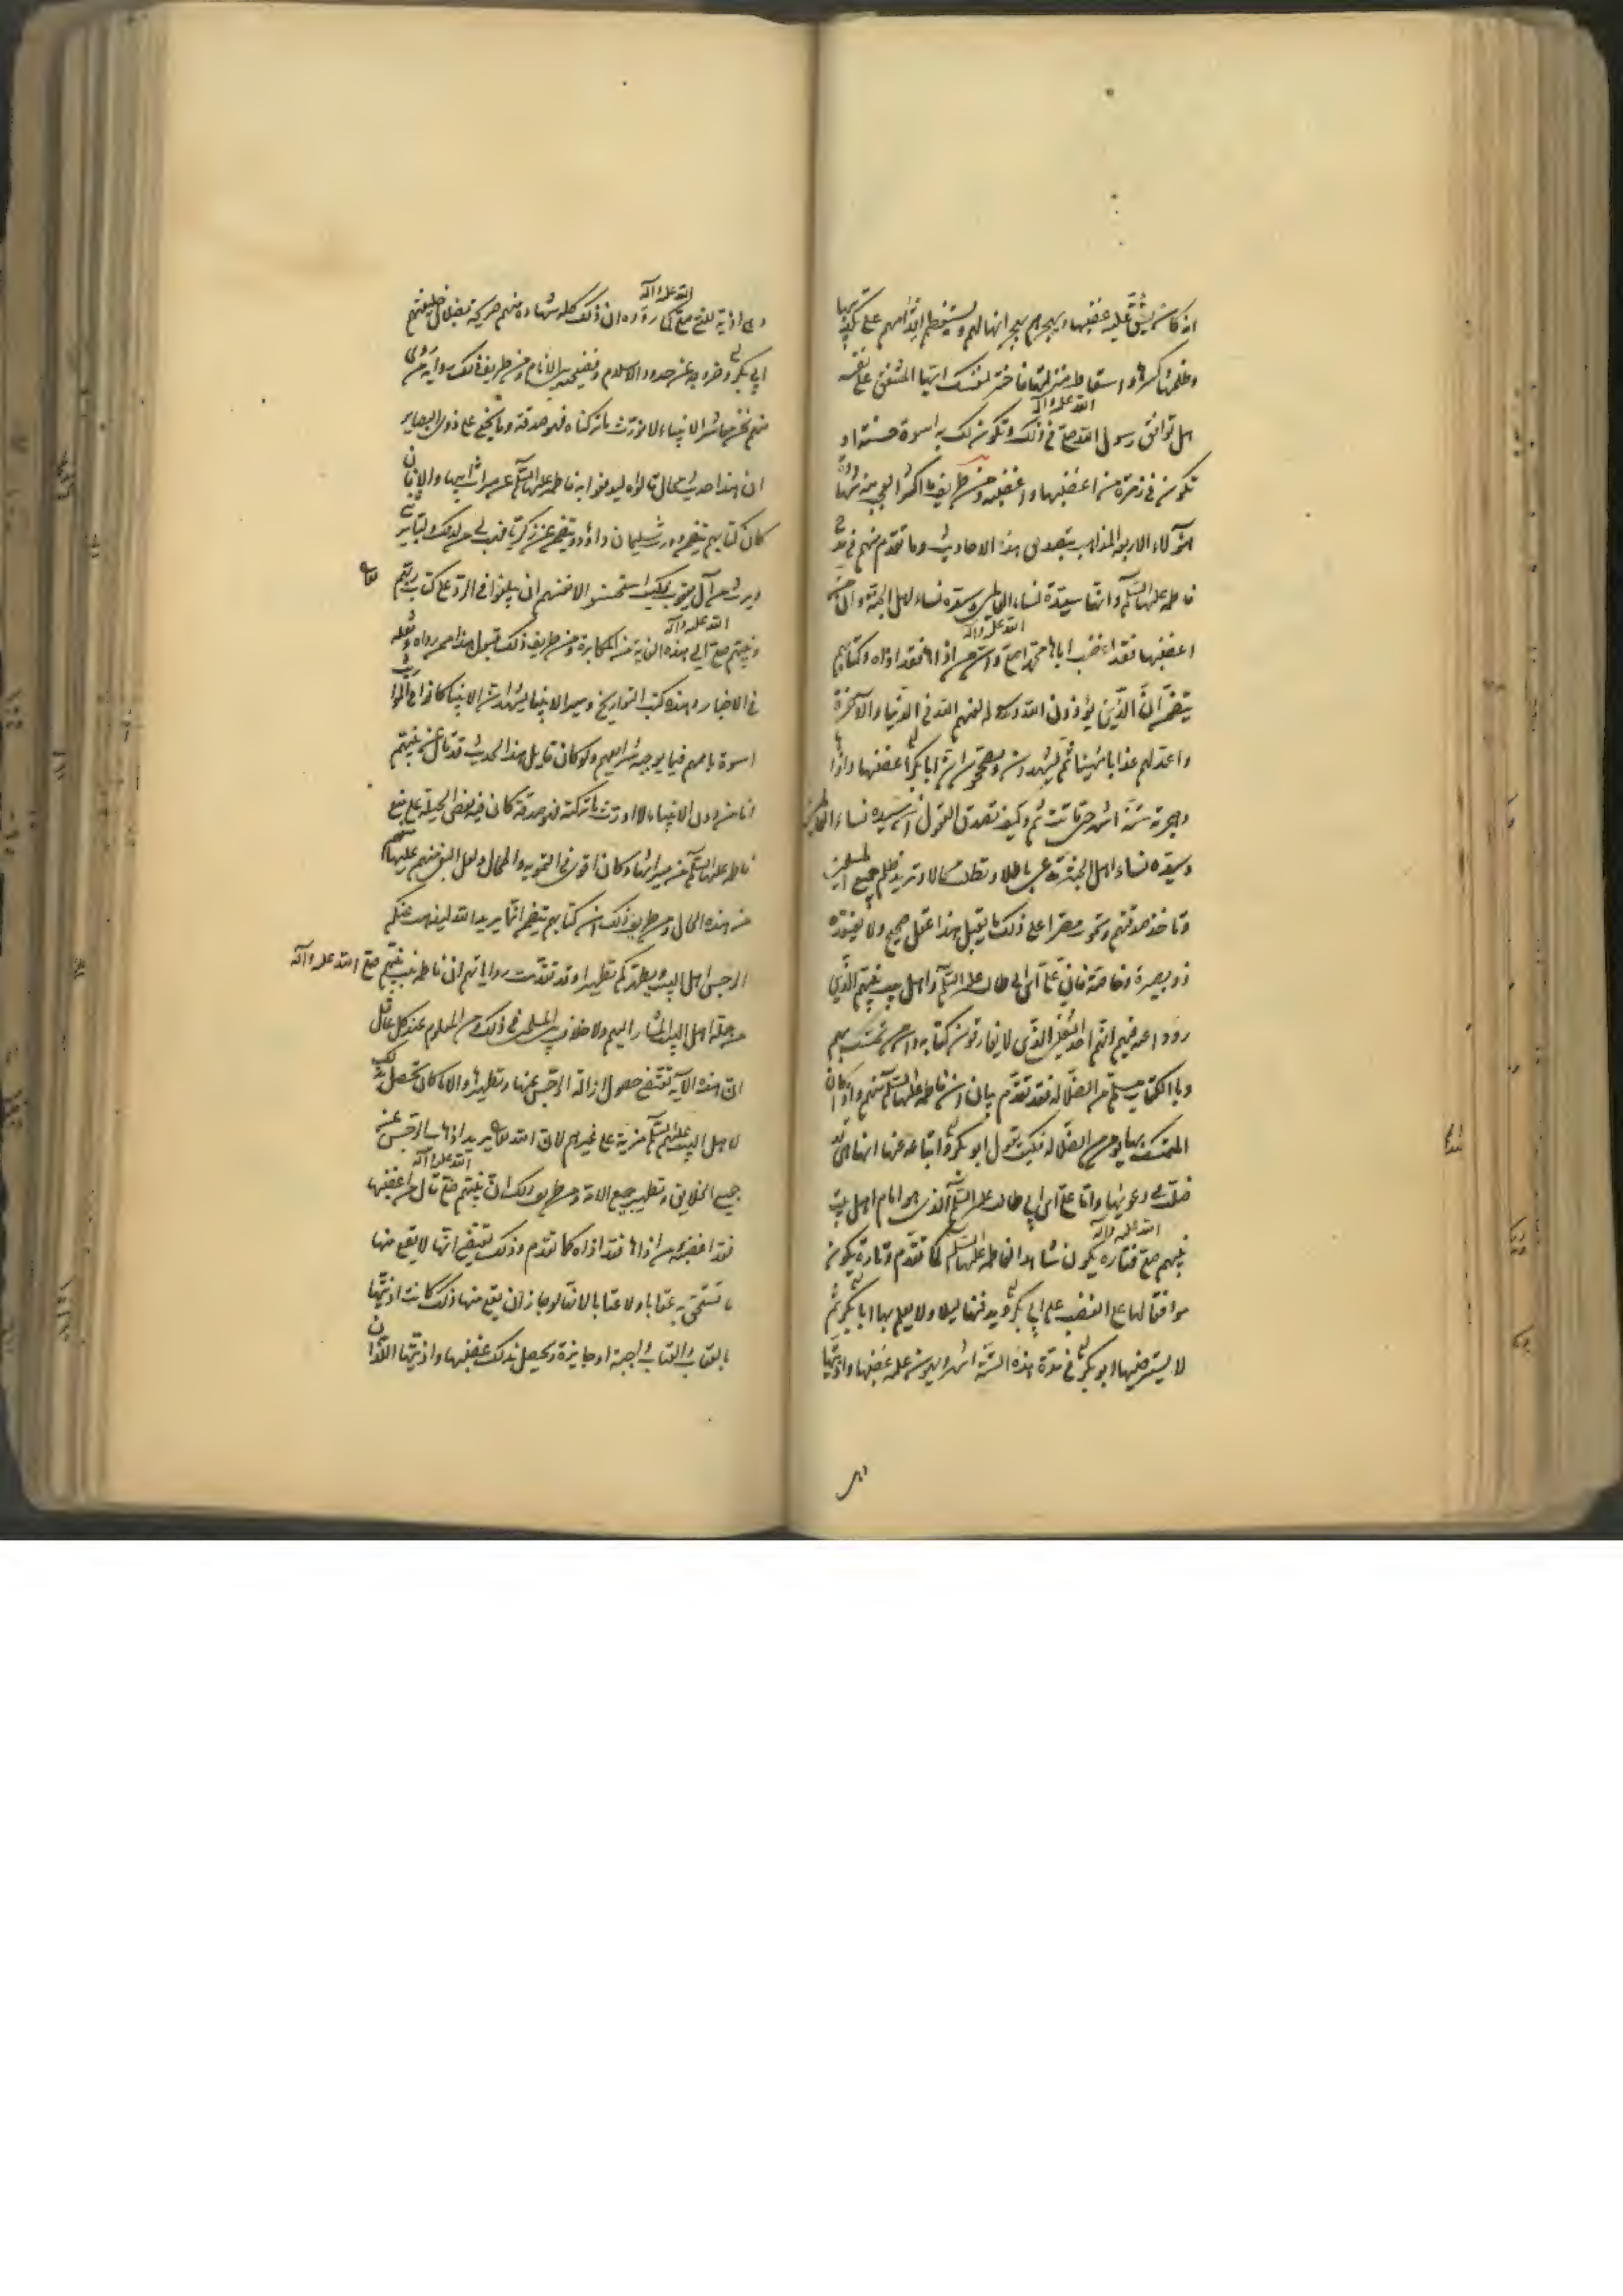 انه كان يشق عليه غضبها ويهجرهم بهجرانها لهم ويستعظم اقدامهم على تكذيبها
وظلمها وكسرها واسقاط منزلتها فاختر لنفسك ايها المشفق على نفسه
هل توافق رسول الله صلى الله عليه وآله في ذلك وتكون لك به اسوة حسنة او
تكون في زمرة من اغضبها واغضبه ومن طريف ما اكثر العجب منه شهادة
هؤلاء الاربعة المذاهب بتصديق هذه الاحاديث وما تقدم منهم في مدح
فاطمة عليها السلم وانها سيدة نساء العالمين وسيدة نساء اهل الجنة وان من
اغضبها فقد اغضب اباها محمدا صلى الله عليه وآله وان من اذاها فقد اذاه وكتابهم
يتضمن ان الذين يؤذون الله ورسوله لعنهم الله في الدنيا والآخرة
واعد لهم عذابا مهينا ثم يشهدون ويصححون ان ابا بكر اغضبها واذاها
وهجرته ستة اشهر حتى ماتت ثم وكيف تصدق العقول ان سيدة نساء العالمين
وسيدة نساء اهل الجنة تدعي باطلا وتطلب محالا وتريد ظلم جميع المسلمين
وتأخذ صدقتهم وتموت مصرا على ذلك ما يقبل هذا عقل صحيح ولا يعتقده
ذو بصيرة وخاصة فان علي ابن ابي طالب عليه السلم واهل بيت نبيهم الذين
رووا عنه فيهم انهم احد الثقلين الذين لا يفارقون كتابه وان من تمسك بهم
وبالكتاب سلم من الضلالة فقد تقدم بيان ان فاطمة عليها السلم منهم واذا كان
المتمسك بها يؤمن من الضلالة فكيف يقول ابو بكر واتباعه عنها انها هي قد
ضلت في دعويها واما علي ابن ابي طالب عليه السلم الذي هو امام اهل بيت
نبيهم صلى الله عليه وآله فتارة يكون شاهدا لفاطمة عليها السلم كما تقدم وتارة يكون
موافقا لها على الغضب على ابي بكر ويدفنها ليلا ولا يعلم بها ابا بكر ثم
لا يسترضيها ابو بكر في مدة هذه الستة اشهر ويهون عليه غضبها واذيتها
وهي اذية للنبي صلى الله عليه وآله كما رووه ان ذلك كله شهادة منهم صريحة بضلال خليفتهم
ابي بكر وخروجه عن حدود الاسلام وفضيحته بين الانام ومن طريف ذلك رواية من روى
منهم نحن معاشر الانبياء لا نورث ما تركناه فهو صدقة وما يخفى على ذوي البصاير
ان هذا حديث محال قالوه ليدفعوا به فاطمة عليها السلم عن ميراث ابيها والا فان
كان كتابهم يتضمن وورث سليمان داود ويتضمن عن زكريا فهب لي من لدنك وليا يرثني
ويرث من آل يعقوب فكيف استحسنوا لانفسهم ان يبلغوا في الرد على كتاب ربهم تعالى
ونبيهم صلى الله عليه وآله الى هذه الغاية من المكابرة ومن طريف ذلك قبول هذا ممن رواه ونقله
في الاخبار وهذه كتب التواريخ وسير الانبياء يشهد ان الانبياء كانوا في المواريث
اسوة باممهم فيما يوجبه شرايعهم ولو كان قايل هذا الحديث قد قال عن نبيهم
انا من دون الانبياء لا اورث ما تركته فهو صدقة كان فيه بعض الحيلة على منع
فاطمة عليها السلم من ميراثها وكان اقوى في التمويه والمحال ولعل البغض منهم عليها
من هذه الحال ومن طريف ذلك ان كتابهم يتضمن انما يريد الله ليذهب عنكم
الرجس اهل البيت ويطهركم تطهيرا وقد تقدمت رواياتهم ان فاطمة بنت نبيهم صلى الله عليه وآله
من جملة اهل البيت المشار اليهم ولا خلاف بين المسلمين في ذلك ومن المعلوم عند كل عاقل
ان هذه الآية تقتضي حصول ازالة الرجس عنها وتطهيرها والا ما كان تحصل بذلك
لاهل البيت عليهم السلم مزية على غيرهم لان الله تعالى يريد اذهاب الرجس عن
جميع الخلايق وتطهير جميع الامة ومن طريف ذلك ان نبيهم صلى الله عليه وآله قال من اغضبها
فقد اغضبه ومن اذاها فقد اذاه كما تقدم وذلك يقتضي انها لا يقع منها
ما تستحق به عتابا ولا عقابا لانه لو جاز ان يقع منها ذلك كانت اذيتها
بالعقاب والعتاب واجبة او جايزة وتحصل بذلك غضبها واذيتها اللذان